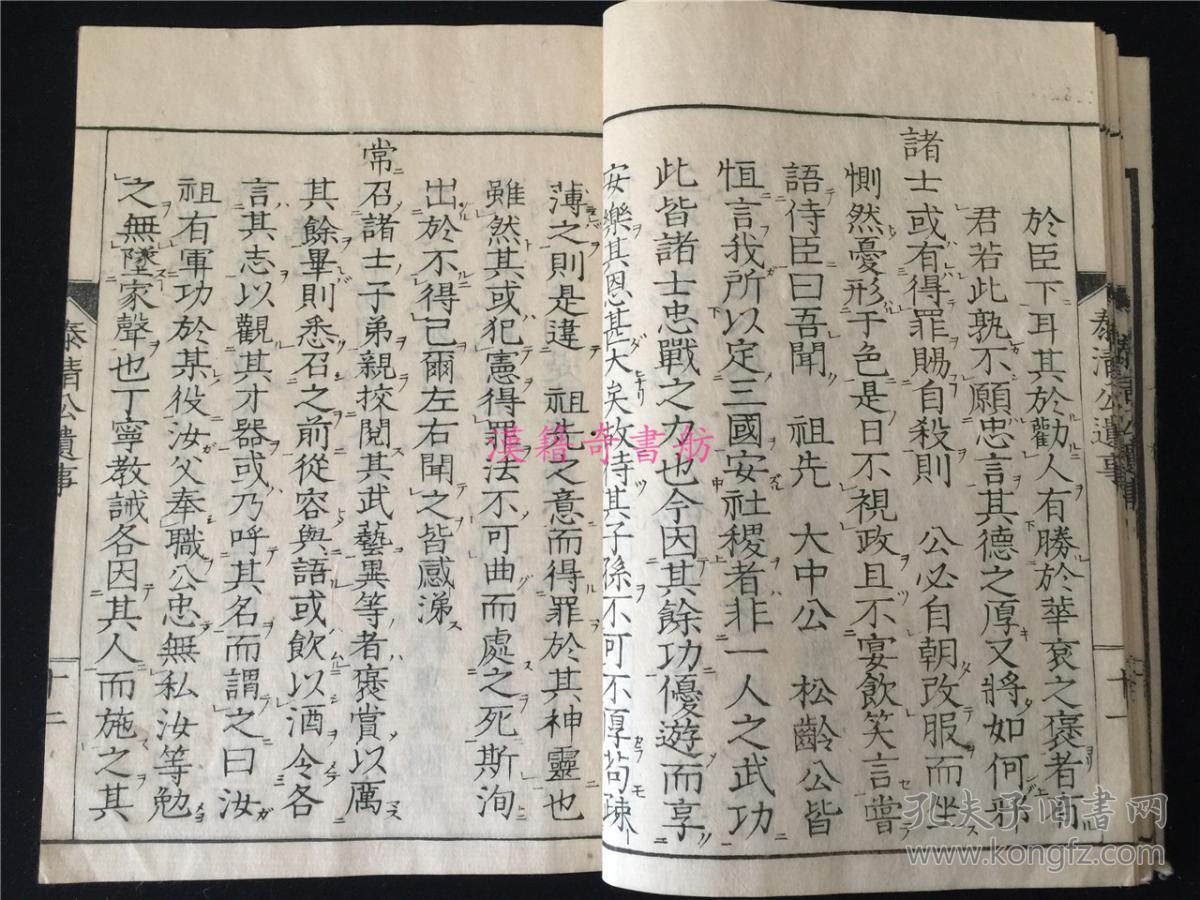 於臣下耳其於勸人有勝於華袞之褒者有
君若此孰不願忠言其德之厚又將如何邪
諸士或有得罪賜自殺則 公必自朝改服而坐
惻然憂形于色是日不視政且不宴飲笑言嘗
語侍臣曰吾聞 祖先 大中公 松齡公皆
恒言我所以定三國安社稷者非一人之武功
此皆諸士忠戰之力也今因其餘功優遊而享
安樂其恩甚大矣故待其子孫不可不厚茍疎
薄之則是違 祖先之意而得罪於其神靈也
雖然其或犯憲得罪法不可曲而處之死斯洵
出於不得已爾左右聞之皆感涕
常召諸士子弟親挍閱其武藝異等者褒賞以厲
其餘畢則悉召之前從容與語或飲以酒令各
言其志以觀其才器或乃呼其名而謂之曰汝
祖有軍功於某役汝父奉職公忠無私汝等勉
之無墜家聲也丁寧教誡各因其人而施之其
泰清公遺事
十一
泰清公遺事
十二
漢籍奇書舫
孔夫子旧書网
www.kongfz.com